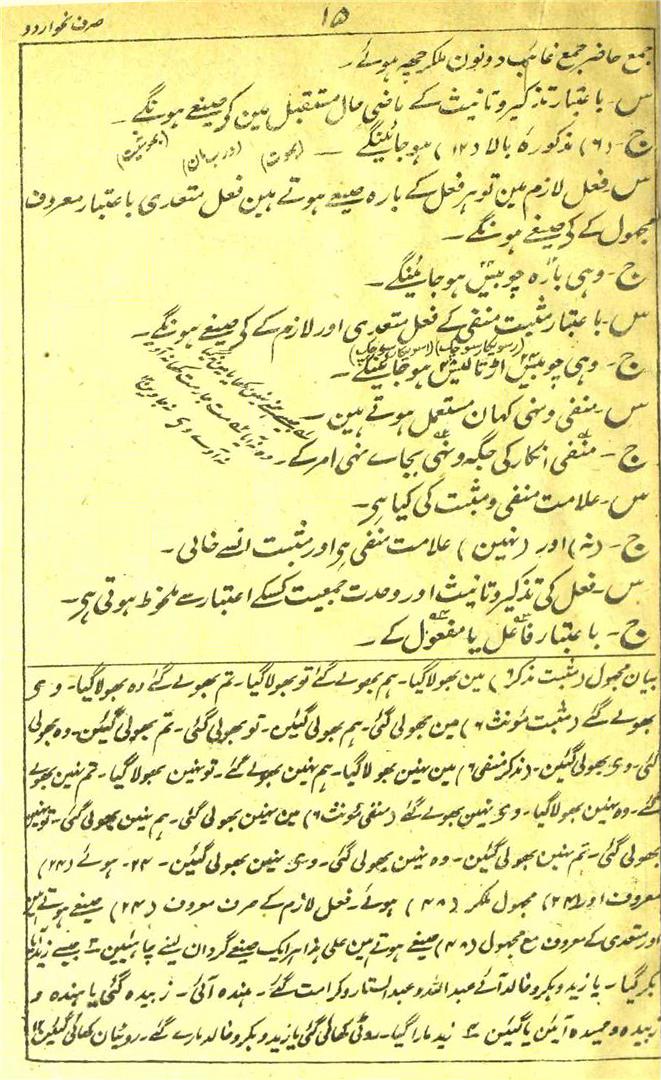 ۱۵
صرف نحو اردو
جمع حاضر جمع غائب دونون ملکر چھہ ہوئے۔
س۔ باعتبار تذکیر و تانیث کے ماضی حال مستقبل مین کَے صیغے ہونگے۔
ج۔ (۶) مذکورۂ بالا (۱۲) ہو جائینگے۔
(بھوت) (وربمان) (بھوشیت)
س۔ فعل لازم مین تو ہر فعل کے بارہ صیغے ہوتے ہین فعل متعدی باعتبار معروف
مجہول کے کَے صیغے ہونگے۔
ج۔ وہی بارہ چوبیس ہو جائینگے۔
س۔ باعتبار مثبت منفی کے فعل متعدی اور لازم کے کَے صیغے ہونگے۔
(اسویکار سوچک) (سویکار سوچک)
ج۔ وہی چوبیس اڑتالیس ہو جائینگے۔
س۔ منفی و نہی کہان مستعمل ہوتے ہین۔
ج۔ منفی انکار کی جگہ و نہی بجاے نہی امر کے۔
س۔ علامت منفی و مثبت کی کیا ہی۔
ج۔ (نہ) اور (نہین) علامت منفی ہی اور مثبت انسے خالی۔
س۔ فعل کی تذکیر و تانیث اور وحدت جمعیت کسکے اعتبار سے ملحوظ ہوتی ہی۔
ج۔ باعتبار فاعل یا مفعول کے۔
بیان مجہول (مثبت مذکر ۶) مین بھولا گیا۔ ہم بھولے گئے تو بھولا گیا۔ تم بھولے گئے وہ بھولا گیا۔ وی
بھولے گئے (مثبت مؤنث ۶) مین بھولی گئی۔ ہم بھولی گئین۔ تو بھولی گئی۔ تم بھولی گئین۔ وہ بھولی
گئی۔ وی بھولی گئین۔ (مذکر منفی ۶) مین نہین بھولا گیا۔ ہم نہین بھولے گئے۔ تو نہین بھولا گیا۔ تم نہین بھولے
گئے۔ وہ نہین بھولا گیا۔ وی نہین بھولے گئے (منفی مؤنث ۶) مین نہین بھولی گئی۔ ہم نہین بھولی گئی۔ تو نہین
بھولی گئی۔ تم نہین بھولی گئین۔ وہ نہین بھولی گئی۔ وی نہین بھولی گئین۔ ۲۴۔ ہوئے (۲۴)
معروف اور (۲۴) مجہول ملکر (۴۸) ہوئے۔ فعل لازم کے صرف معروف (۲۴) صیغے ہوتے ہین
اور متعدی کے معروف مع مجہول (۴۸) صیغے ہوتے ہین علی ہذا ہر ایک صیغے گردان لینے چاہئین جیسے زید آیا
بکر گیا۔ یا زید و بکر و خالد آئے عبداللہ و عبدالستار و کرامت گئے۔ ہندہ آئی۔ زبیدہ گئی یا ہندہ و
زبیدہ و حمیدہ آئین یا گئین زید مارا گیا۔ روٹی کھائی گئی یا زید و بکر و خالد مارے گئے۔ روٹیان کھائی گئین ۱۲